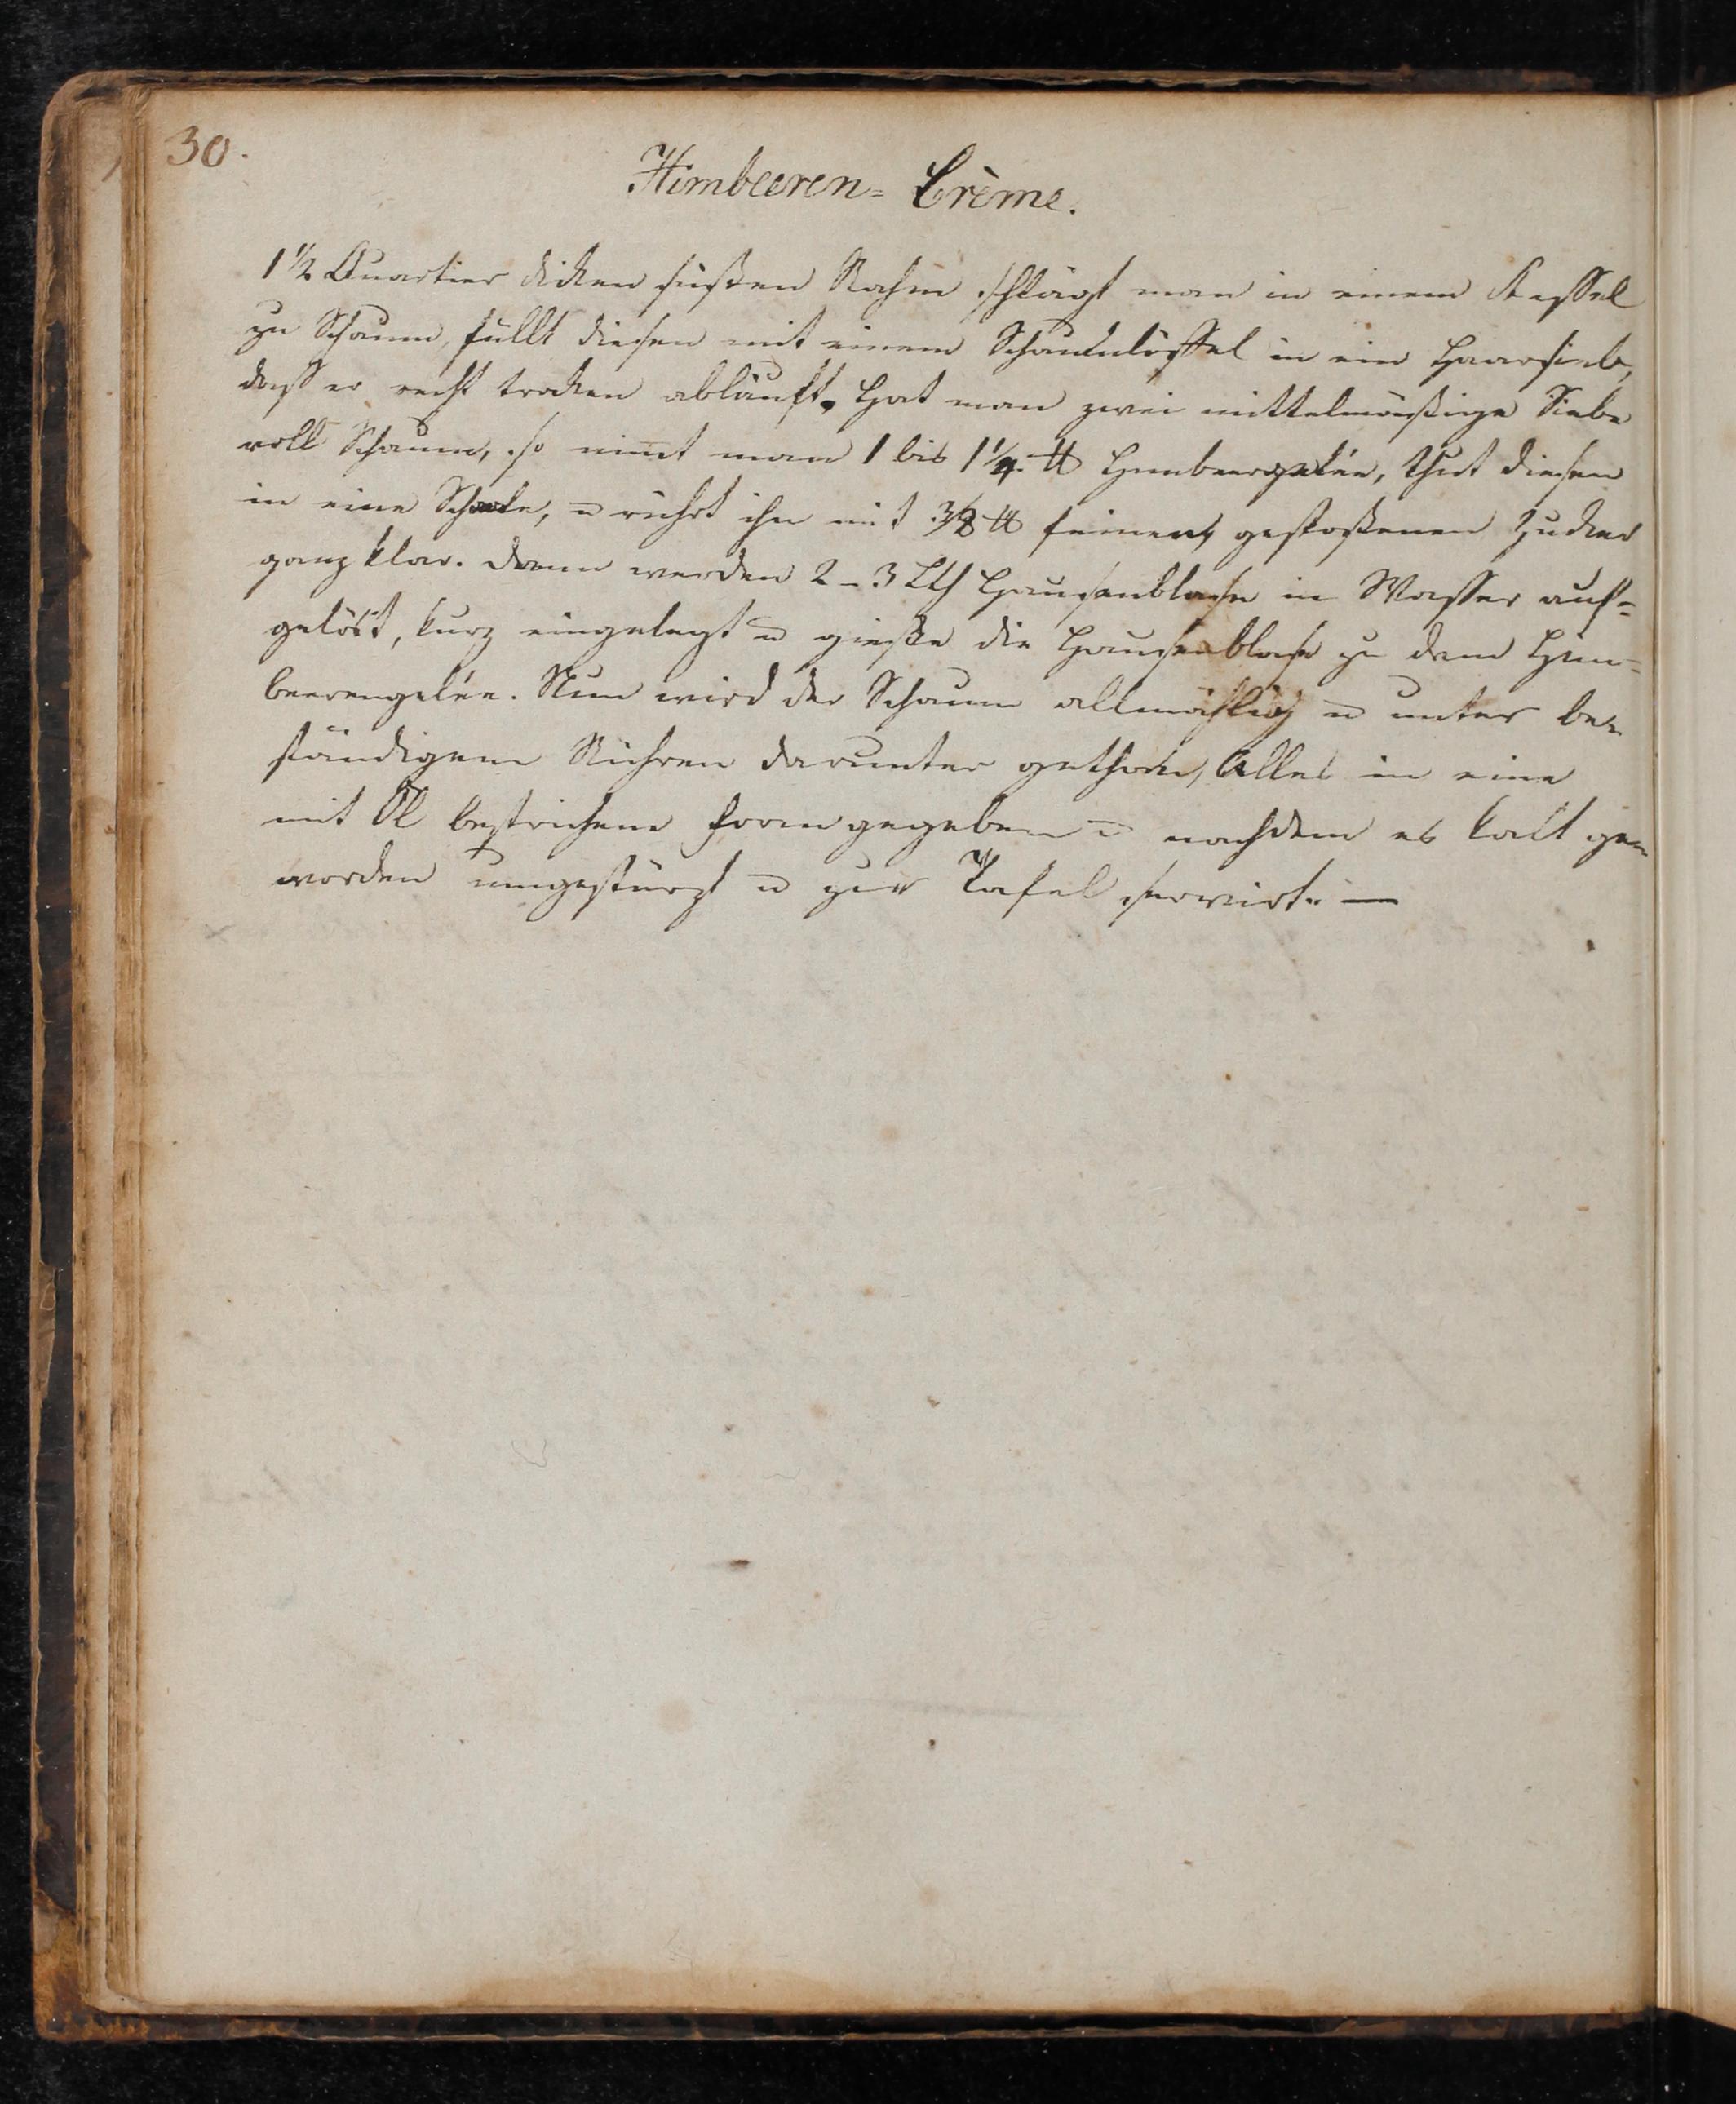 30.
Himbeeren= Crème.
1 1/2 Quartier dicken süßen Rahm schlägt man in einem Kessel
zu Schaum, füllt diesen mit einem Schaumlöffel in ein Haarsieb,
daß er recht trocken abläuft. Hat man zwei mittelmäßige Siebe
voll Schaum, so nim̅t man 1 bis 1 1/4 ℔ Himbeergelée, thut diesen
in eine Schale, u rührt ihn mit 3/8 ℔ feinem gestoßenen Zucker
ganz klar. Dann werden 2 - 3 Lth Hausenblase in Wasser auf=
gelößt, kurz eingelegt u gieße die Hausenblase zu dem Him=
beerengelée. Nun wird der Schaum allmählig u unter be=
ständigem Rühren darunter gethan, Alles in eine
mit Öl bestrichene Form gegeben u nachdem es kalt ge=
worden umgestürzt u zur Tafel servirt. —